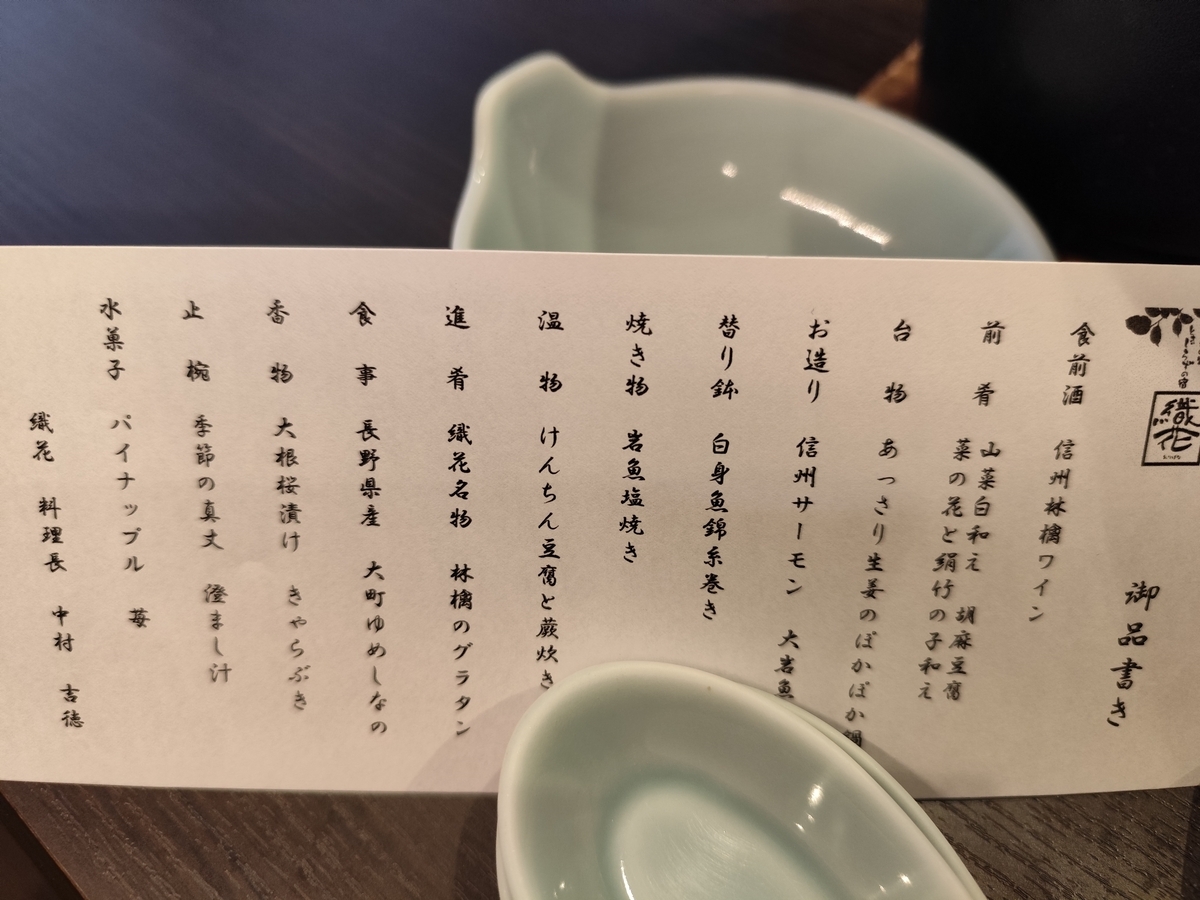 織花
御品書き
食前酒 信州林檎ワイン
前肴 山菜白和え 胡麻豆腐
菜の花と絹竹の子和え
台物 あっさり生姜のぽかぽか鍋
お造り 信州サーモン 大岩魚
替り鉢 白身魚錦糸巻き
焼き物 岩魚塩焼き
温物 けんちん豆腐と蕨炊き
進肴 織花名物 林檎のグラタン
食事 長野県産 大町ゆめしなの
香物 大根桜漬け きゃらぶき
止椀 季節の真丈 澄まし汁
水菓子 パイナップル 苺
織花 料理長 中村 吉徳